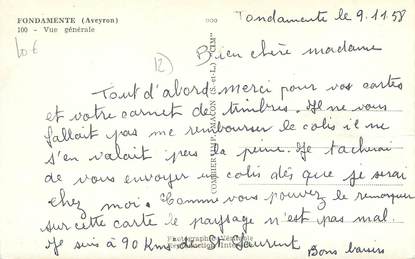 FONDAMENTE (Aveyron)
100 - Vue générale
10€
12)
Fondamente le 9.11.58
Bien chère madame
Tout d'abord merci pour vos cartes
et votre carnet de timbres. Il ne vous
fallait pas me rembourser le colis il ne
s'en valait pas la peine. Je tacherai
de vous envoyer un colis dès que je serai
chez moi. Comme vous pouvez le remarquer
sur cette carte le paysage n'est pas mal.
Je suis à 90 Kms de St Laurent
Bons baisers
COMBIER IMP. MACON (S.-et-L.) "CIM"
Photographie Véritable
Reproduction Interdite